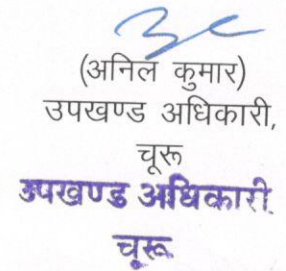 (अनिल कुमार)
उपखण्ड अधिकारी,
चूरू
उपखण्ड अधिकारी
चूरू